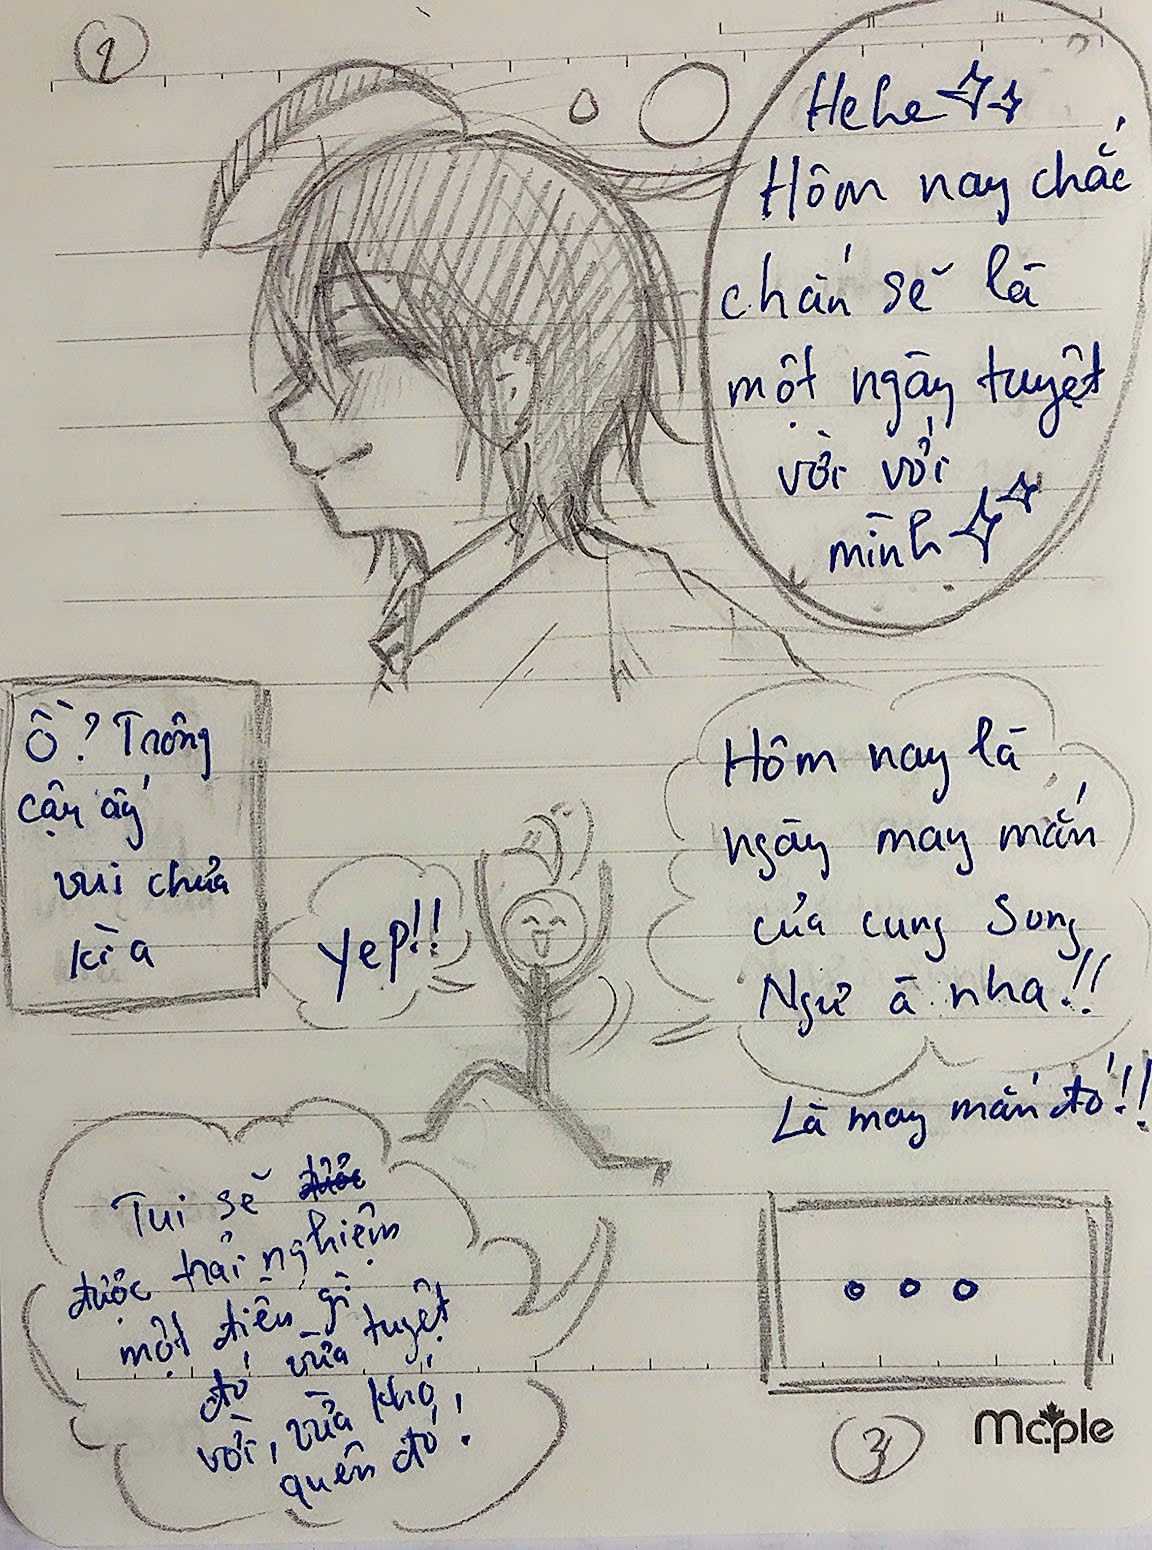 1
Hehe
Hôm nay chắc
chắn sẽ là
một ngày tuyệt
vời với
mình
Ồ? Trông
cậu ấy
vui chưa
kìa
Yep!!
Hôm nay là
ngày may mắn
của cung Song
Ngư à nha!!
Là may mắn đó!!
Tui sẽ
được trải nghiệm
một điều gì
đó vừa tuyệt
vời, vừa khó
quên đó!
...
3
Maple